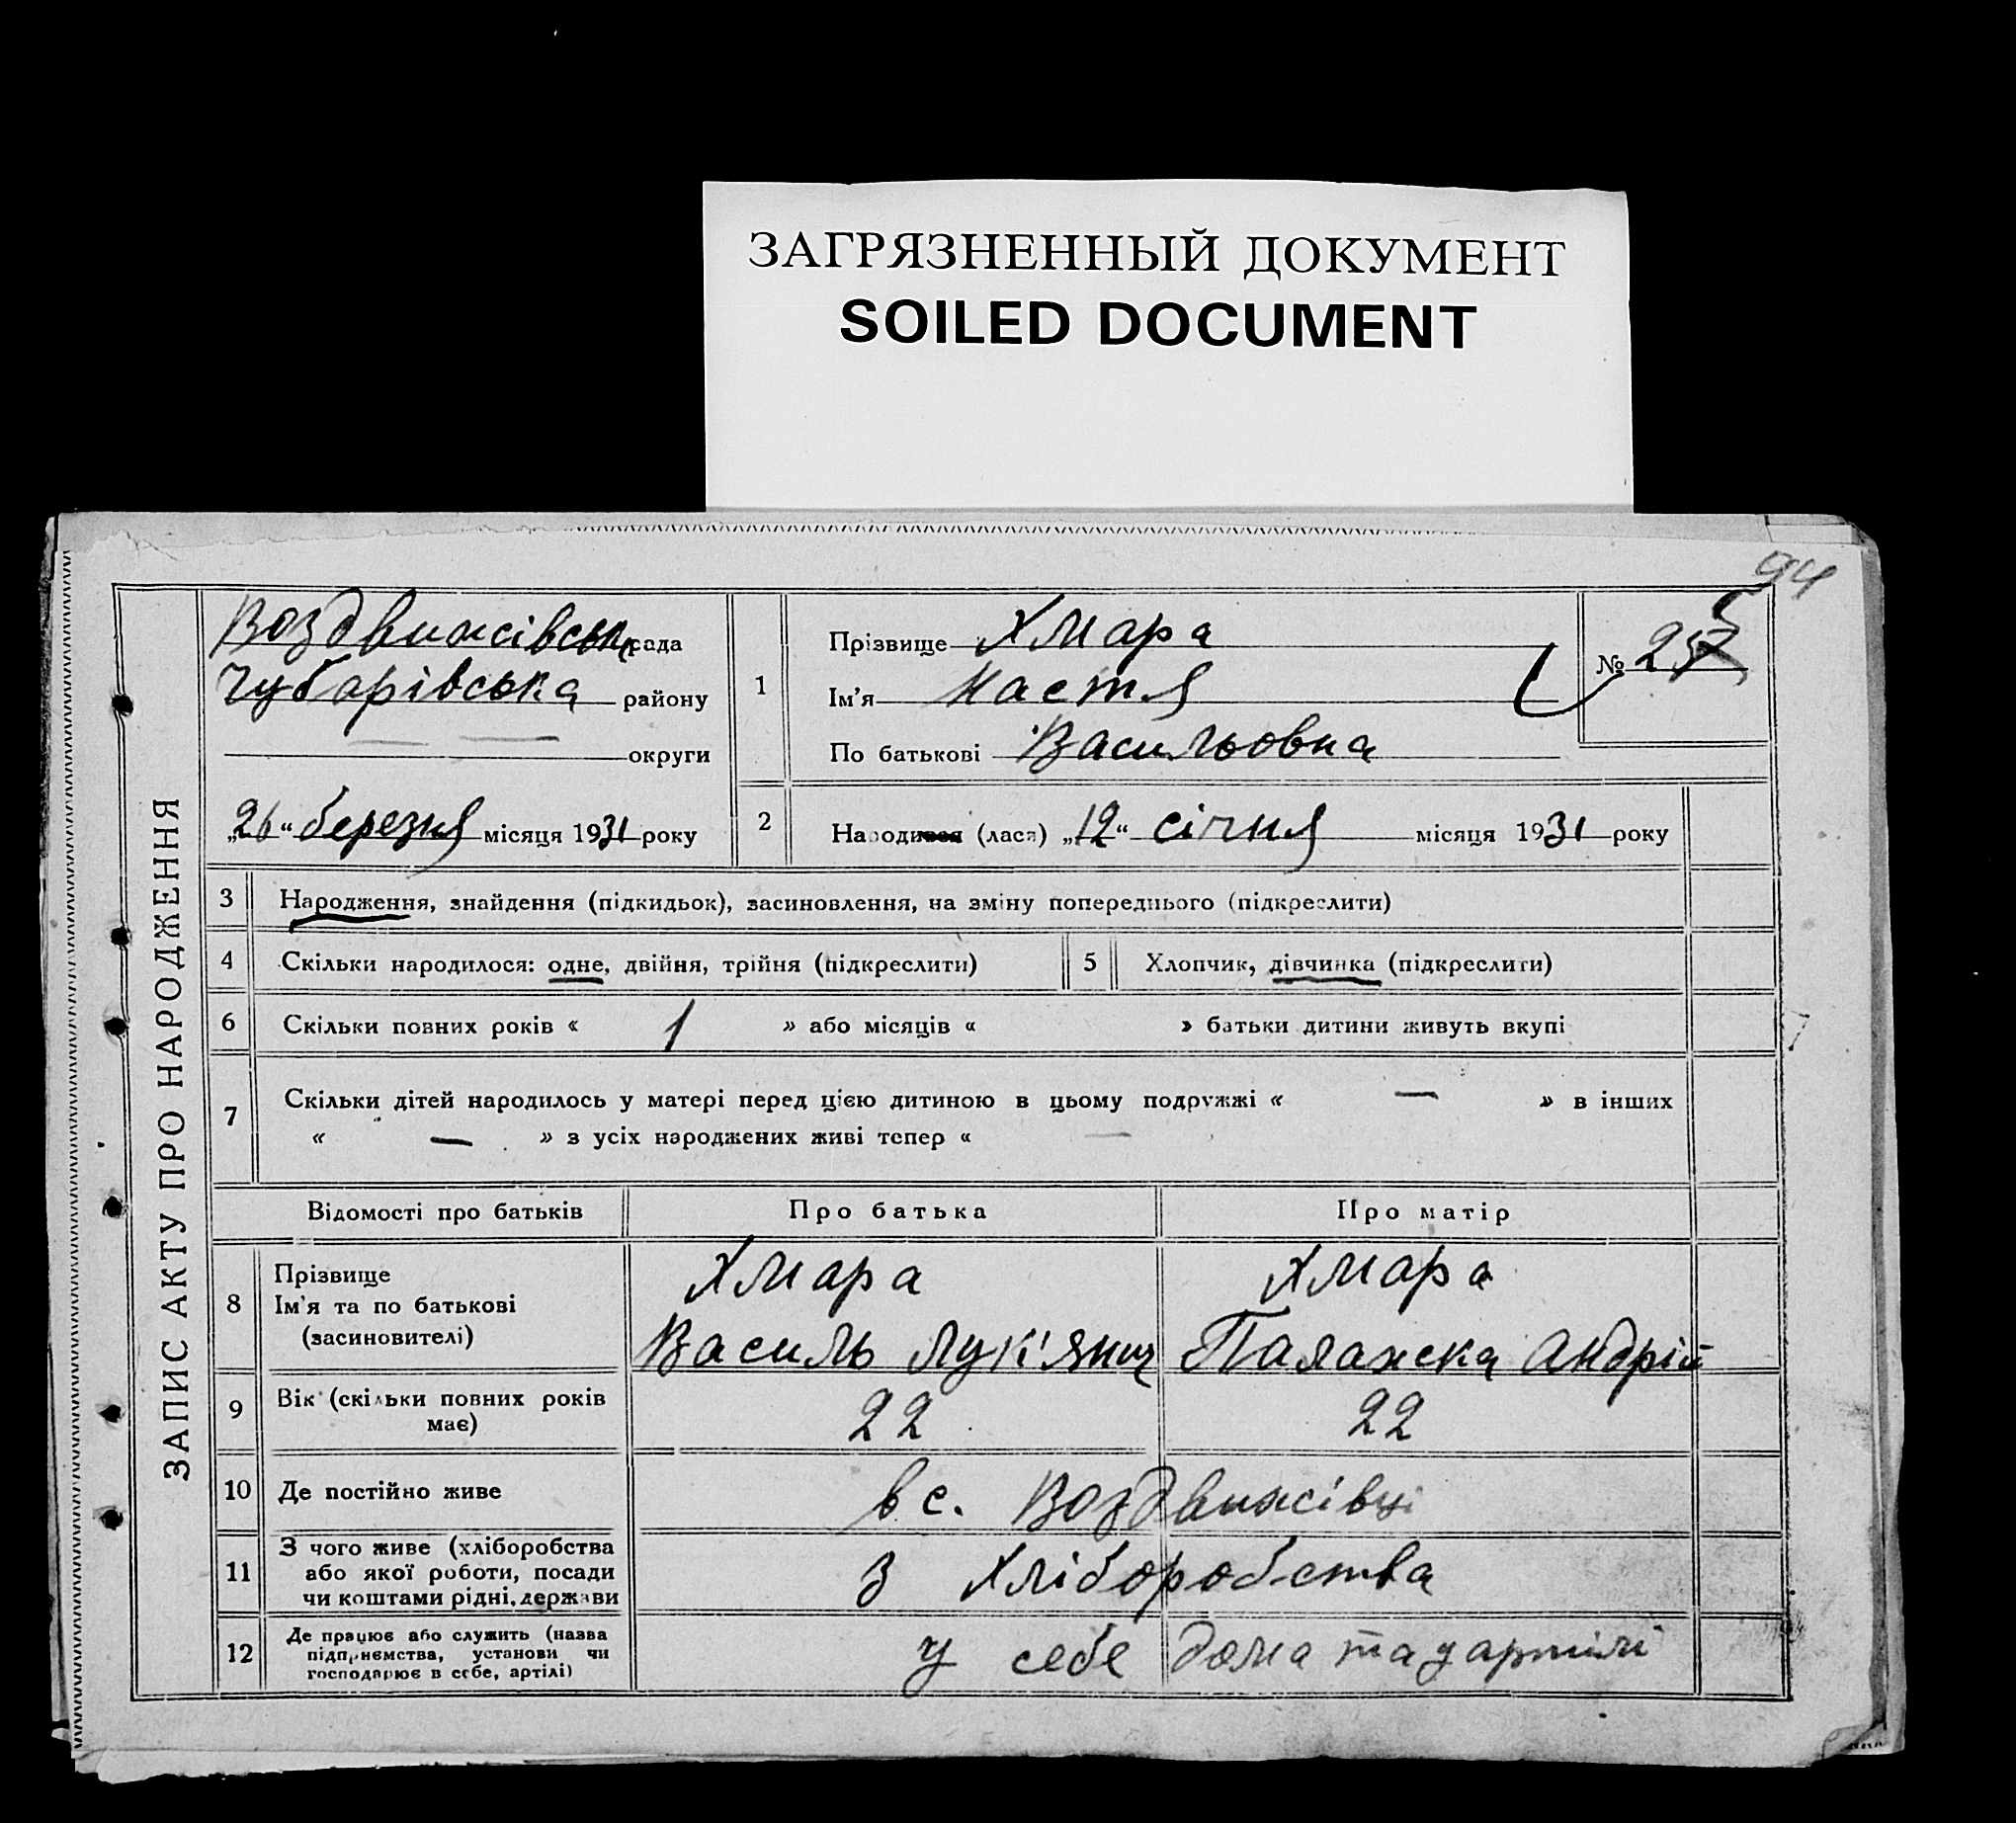 ЗАГРЯЗНЕННЫЙ ДОКУМЕНТ
SOILED DOCUMENT
94
ЗАПИС АКТУ ПРО НАРОДЖЕННЯ
Воздвижівська рада
Чубарівська району
округи
„26“ березня місяця 1931 року
1
Прізвище Хмара
Ім'я Настя
По батькові Васильовна
№ 25
2 Народився (лася) „12“ січня місяця 1931 року
3 Народження, знайдення (підкидьок), засиновлення, на зміну попереднього (підкреслити)
4 Скільки народилося: одне, двійня, трійня (підкреслити) 5 Хлопчик, дівчинка (підкреслити)
6 Скільки повних років « 1 » або місяців « » батьки дитини живуть вкупі
7 Скільки дітей народилось у матері перед цією дитиною в цьому подружжі « — » в інших
« — » з усіх народжених живі тепер « —
Відомості про батьків Про батька Про матір
8 Прізвище Хмара Хмара
Ім'я та по батькові
(засиновителі) Василь Лук'янич Палажка Андрій
9 Вік (скільки повних років має) 22 22
10 Де постійно живе в с. Воздвижівці
11 З чого живе (хліборобства
або якої роботи, посади
чи коштами рідні, держави з хліборобства
12 Де працює або служить (назва
підприємства, установи чи
господарює в себе, артілі) у себе дома та у артілі